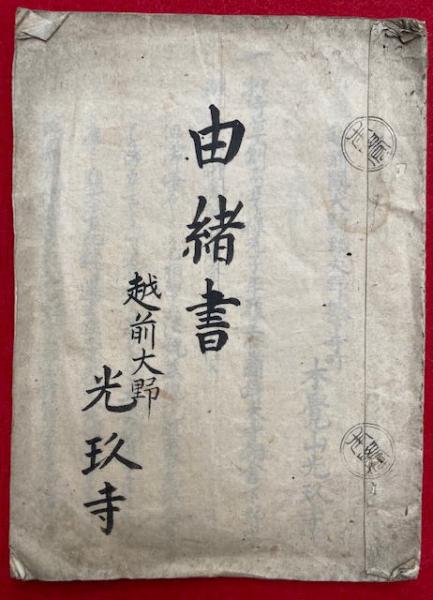 由緒書
越前大野
光玖寺